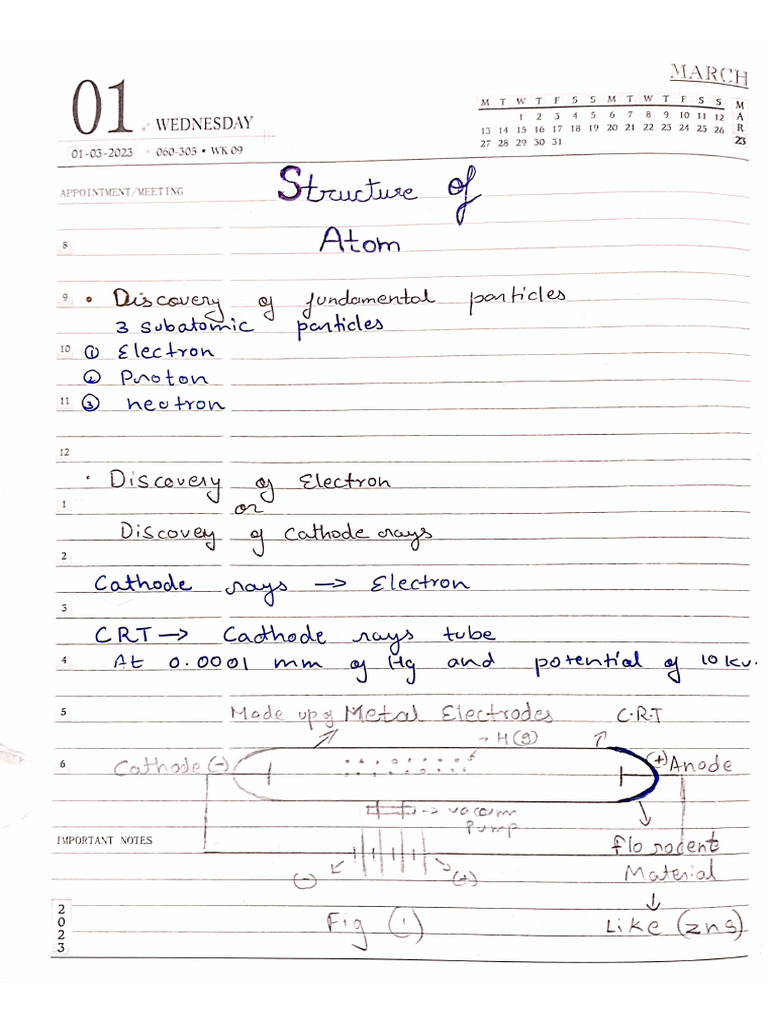 MARCH
01 WEDNESDAY
M T W T F S S M T W T F S S
1 2 3 4 5 6 7 8 9 10 11 12
13 14 15 16 17 18 19 20 21 22 23 24 25 26
27 28 29 30 31
MAR 23
01-03-2023 060-305 • WK 09
APPOINTMENT/MEETING
Structure of
8
Atom
9 • Discovery of fundamental particles
3 subatomic particles
10 ① Electron
② Proton
11 ③ neutron
12
• Discovery of Electron
1 or
Discovey of cathode rays
2
Cathode rays → Electron
3
CRT → Cadhode rays tube
4 At 0.0001 mm of Hg and potential of 10 kv.
5 Made up of Metal Electrodes C.R.T
→ H(g)
6 Cathode (-) (+) Anode
→ vacuum
pump
IMPORTANT NOTES
florodent
(-) (+)
Material
2023
Fig (1) Like (zns)